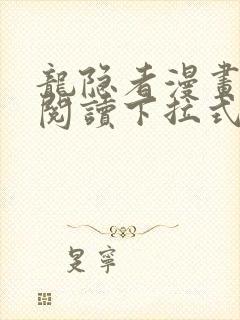 龍隐者漫畫
閱讀下拉式
是寧